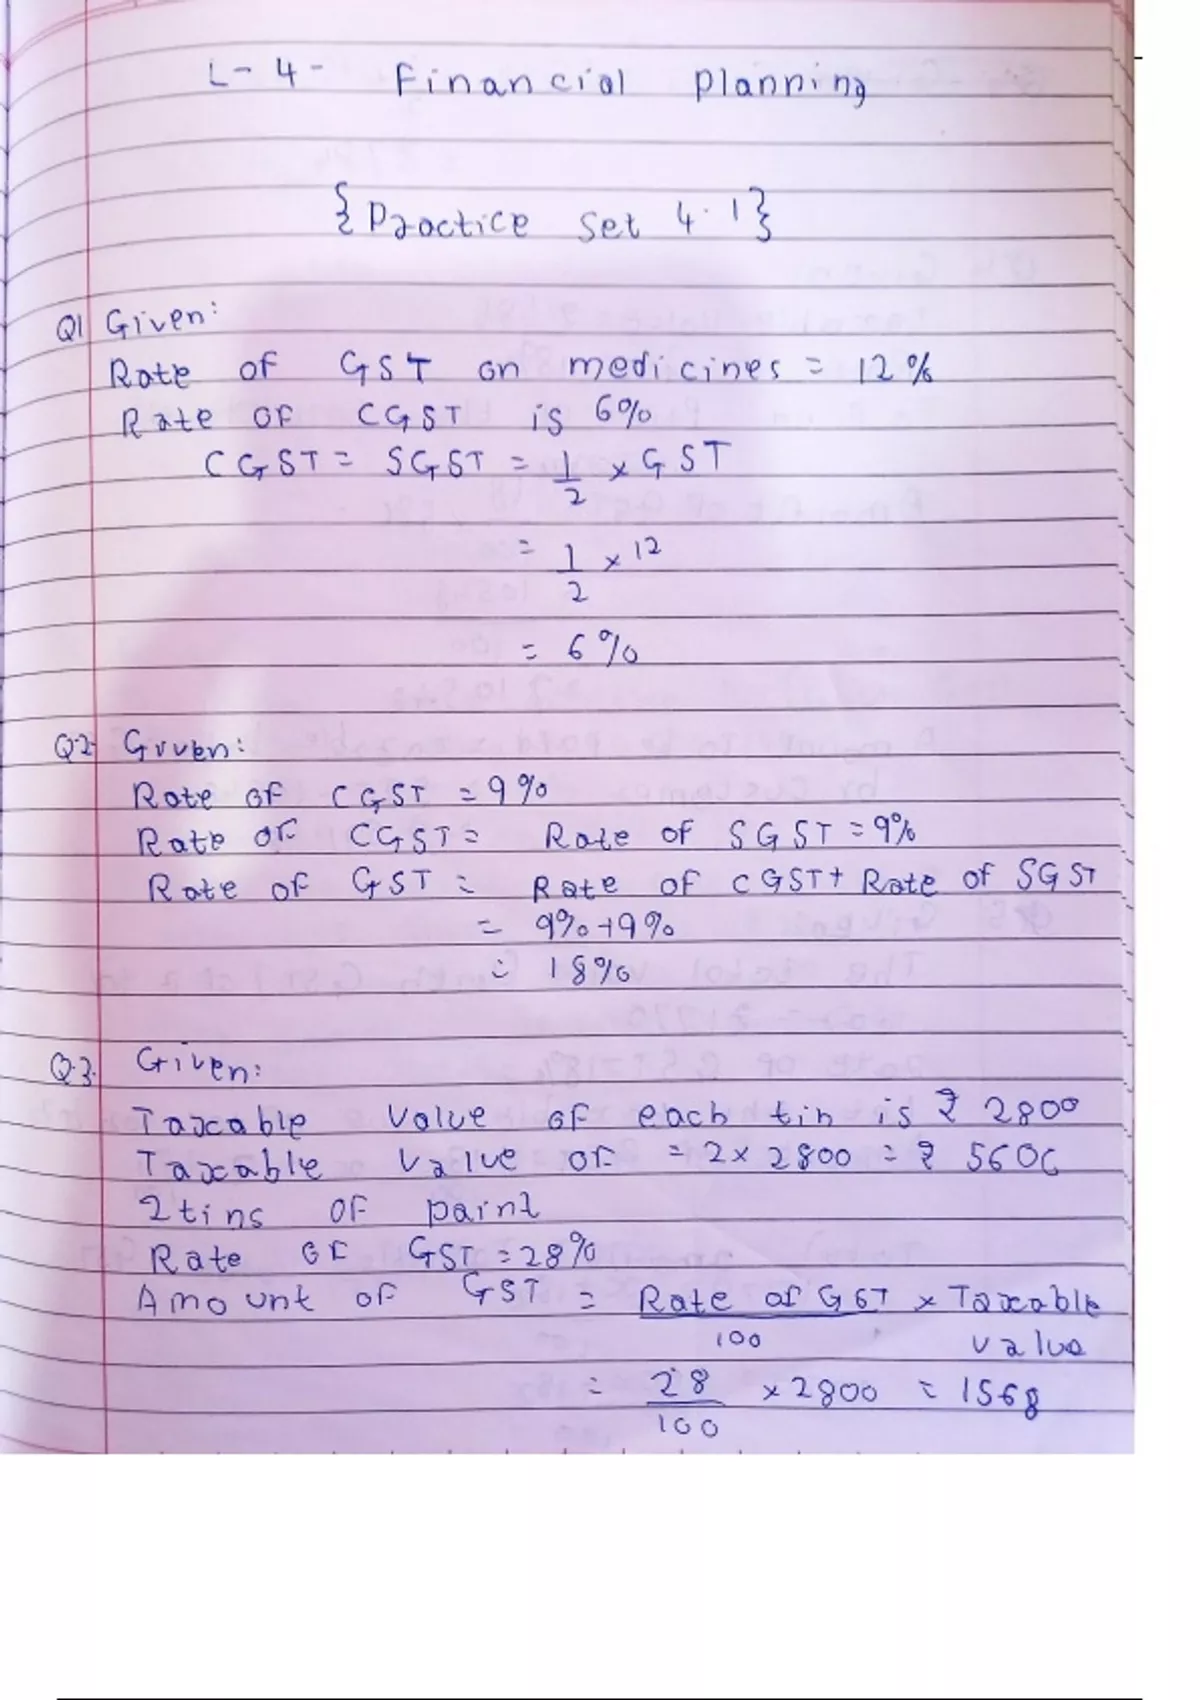 L-4- Financial planning
{Practice Set 4.1}
Q1 Given:
Rate of GST on medicines = 12%
Rate of CGST is 6%
CGST = SGST = 1/2 × GST
= 1/2 × 12
= 6%
Q.2 Given:
Rate of CGST = 9%
Rate of CGST = Rate of SGST = 9%
Rate of GST = Rate of CGST + Rate of SGST
= 9% + 9%
= 18%
Q.3. Given:
Taxable Value of each tin is ₹ 2800
Taxable Value of = 2 × 2800 = ₹ 5600
2 tins of paint
Rate of GST = 28%
Amount of GST = Rate of GST/100 × Taxable
value
= 28/100 × 2800 = 1568